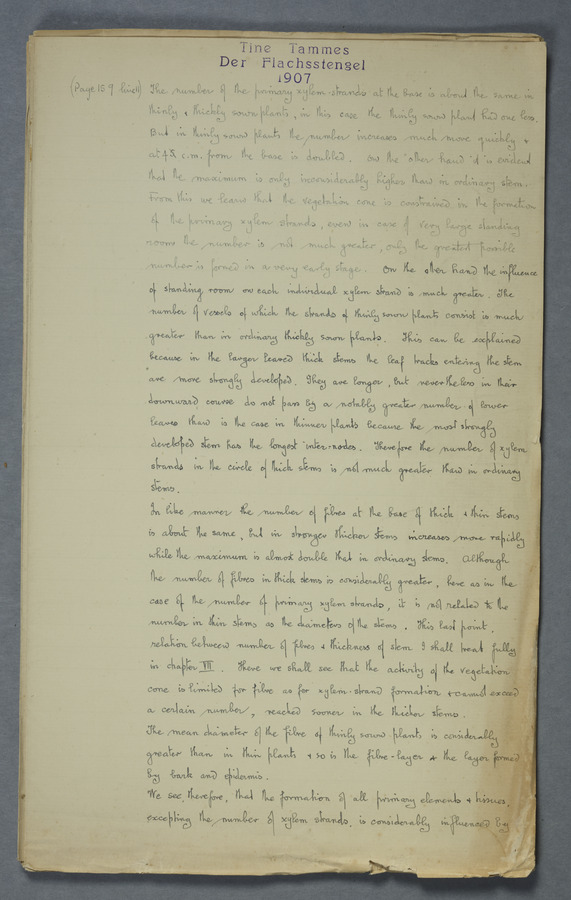 Tine Tammes
Der Flachsstengel
1907
(Page 159 line 11) The number of the primary xylem-strands at the base is about the same in
thinly & thickly sown plants, in this case the thinly sown plant had one less.
But in thinly sown plants the number increases much more quickly &
at 45 c.m. from the base is doubled. On the other hand it is evident
that the maximum is only inconsiderably higher than in ordinary stem.
From this we learn that the vegetation cone is constrained in the formation
of the primary xylem strands, even in case of very large standing
room the number is not much greater, only the greatest possible
number is formed in a very early stage. On the other hand the influence
of standing room on each individual xylem strand is much greater. The
number of vessels of which the strands of thinly sown plants consist is much
greater than in ordinary thickly sown plants. This can be explained
because in the larger leaved thick stems the leaf tracks entering the stem
are more strongly developed. They are longer, but nevertheless in their
downward course do not pass by a notably greater number of lower
leaves than is the case in thinner plants because the most strongly
developed stem has the longest inter-nodes. Therefore the number of xylem
strands in the circle of thick stems is not much greater than in ordinary
stems.
In like manner the number of fibres at the base of thick & thin stems
is about the same, but in stronger thicker stems increases more rapidly
while the maximum is almost double that in ordinary stems. Although
the number of fibres in thick stems is considerably greater, here as in the
case of the number of primary xylem strands, it is not related to the
number in thin stems as the diameters of the stems. This last point,
relation between number of fibres & thickness of stem I shall treat fully
in chapter VII. There we shall see that the activity of the vegetation
cone is limited for fibre as for xylem-strand formation & cannot exceed
a certain number, reached sooner in the thicker stems.
The mean diameter of the fibre of thinly sown plants is considerably
greater than in thin plants & so is the fibre-layer & the layer formed
by bark and epidermis.
We see, therefore, that the formation of all primary elements & tissues,
excepting the number of xylem strands, is considerably influenced by